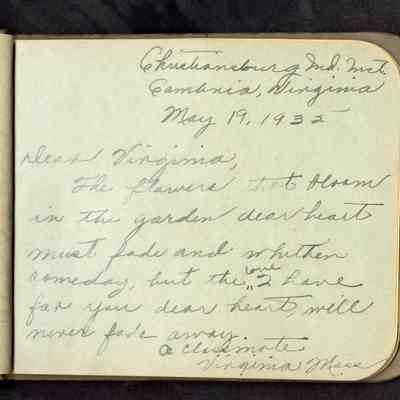 Christiansburg Ind. Inst.
Cambria, Virginia
May 19, 1932
Dear Virginia,
The flowers that bloom
in the garden dear heart
must fade and whither
someday, but the love I have
for you dear heart, will
never fade away.
a classmate
Virginia Moss